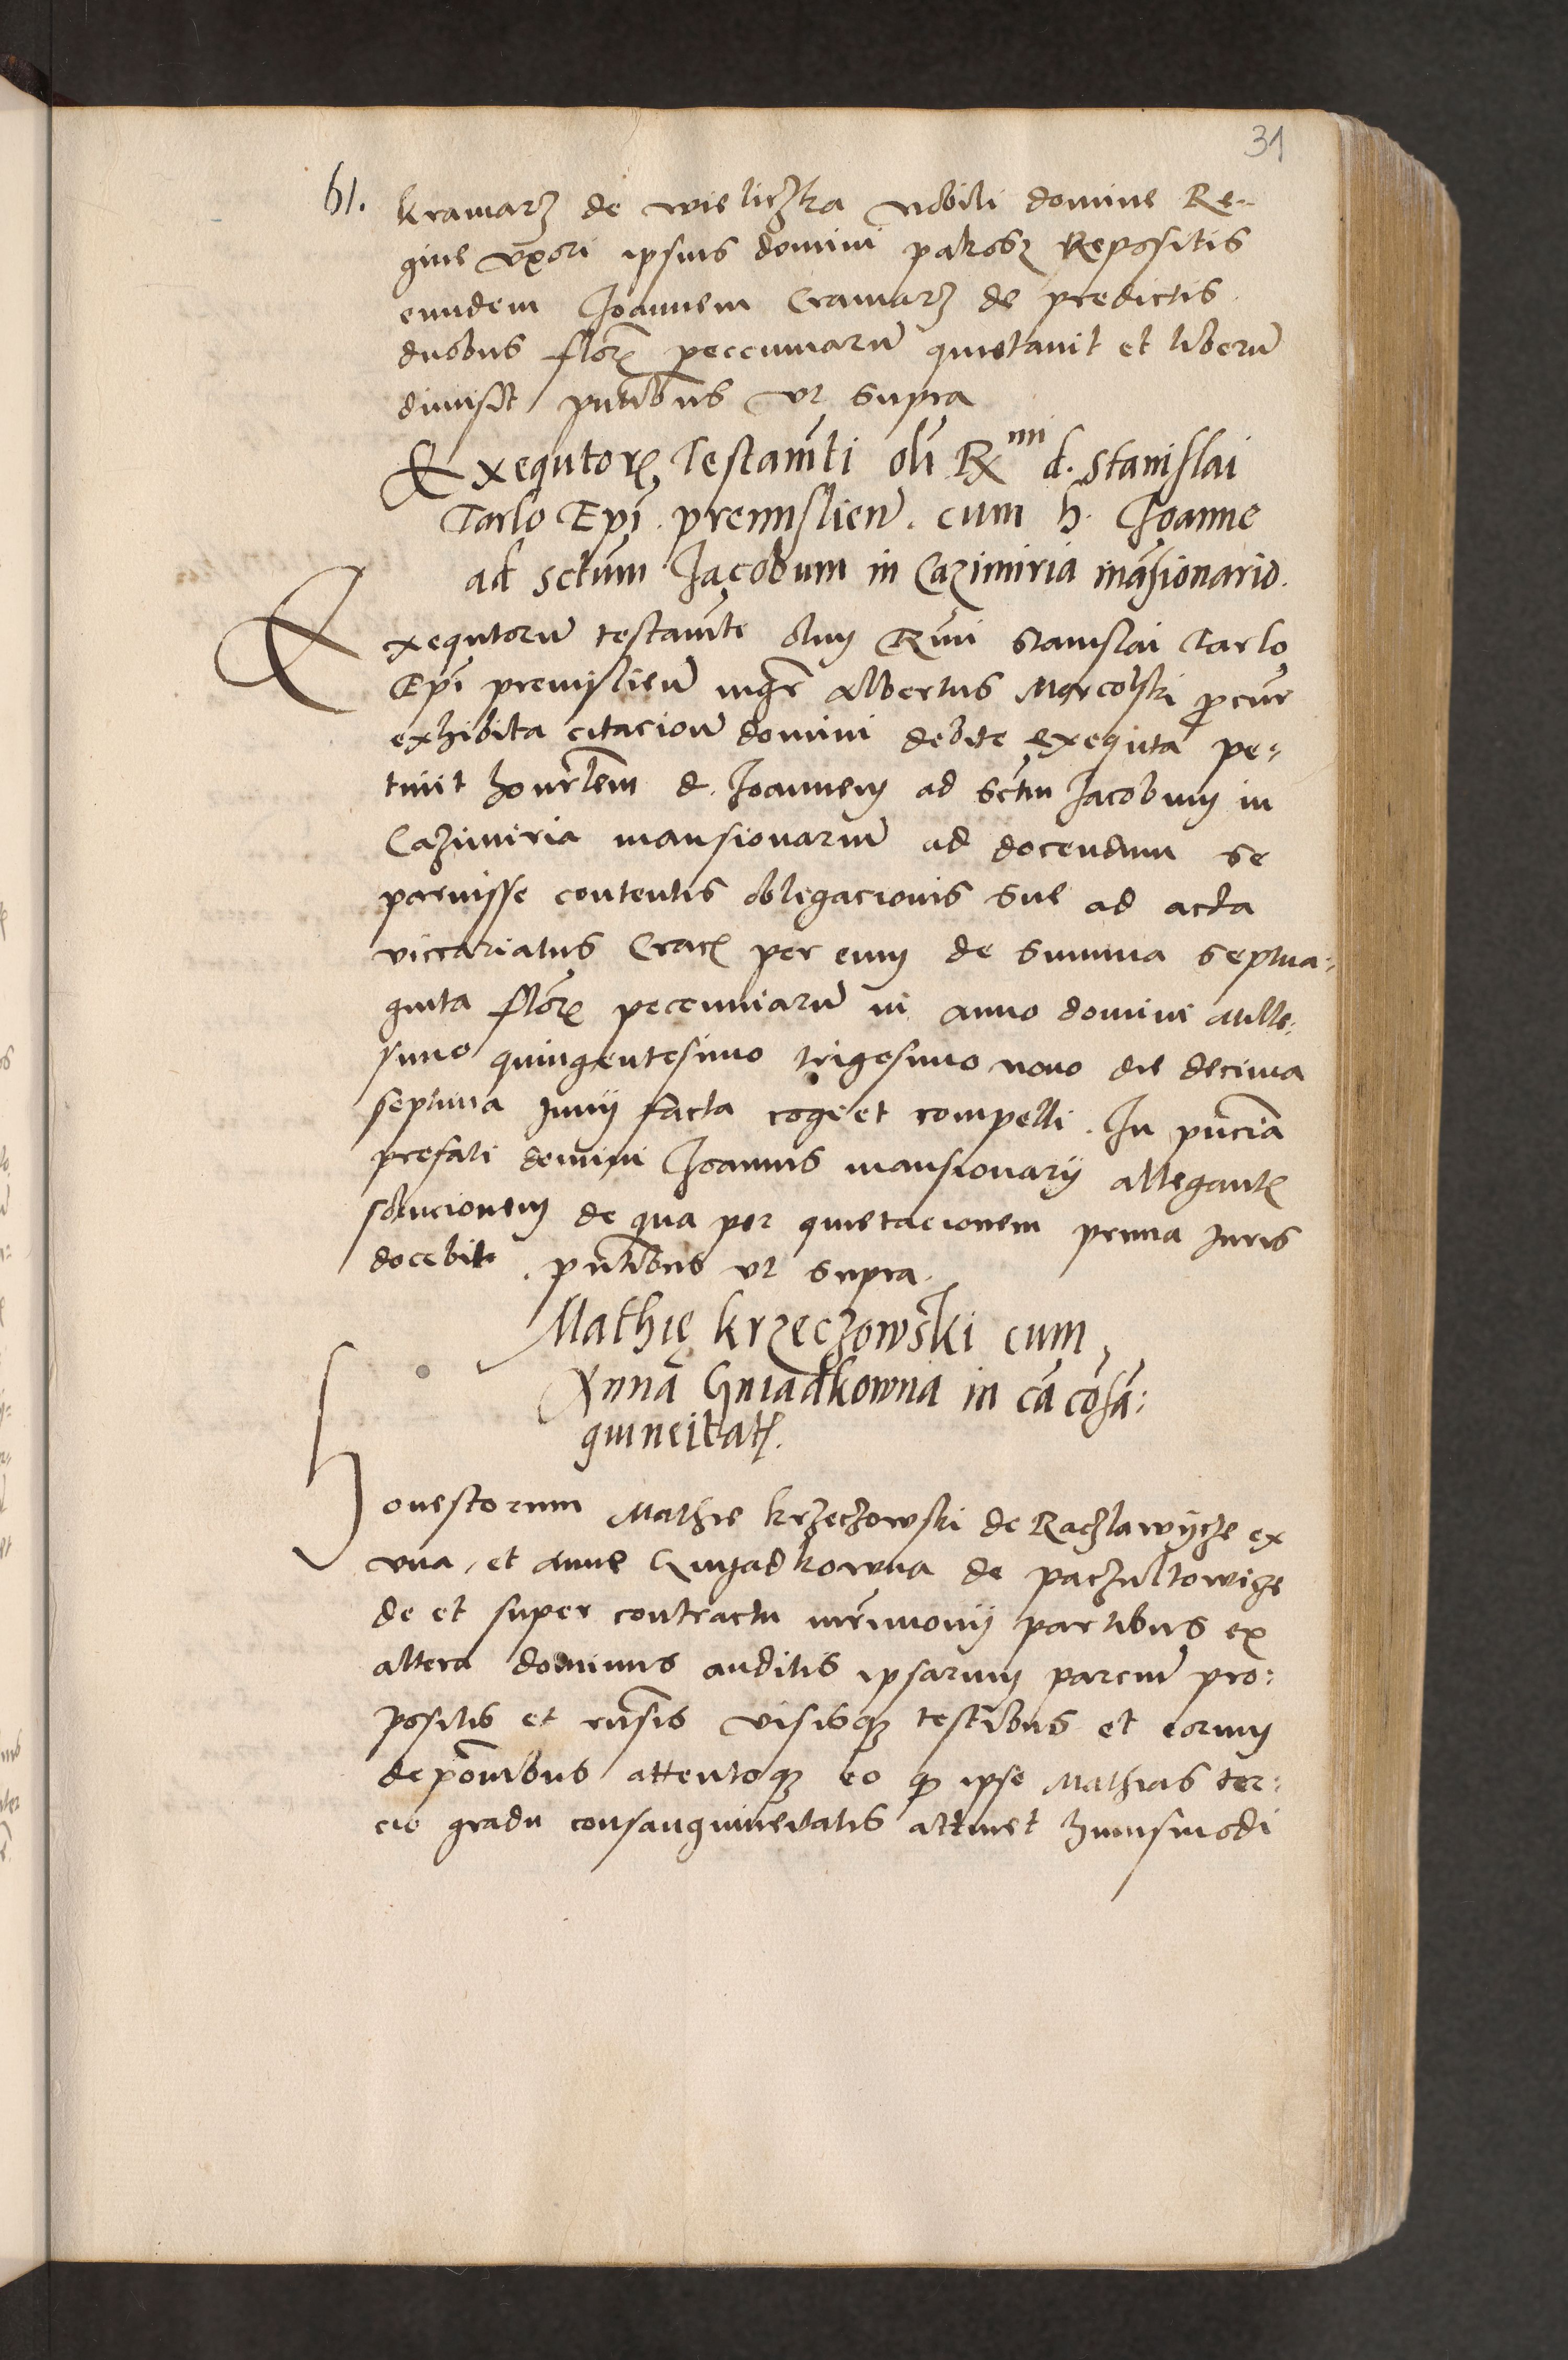 31
61. kramarz de wieliczka nobili domine Re-
gine uxori ipsius domini pakosz Repositis
eundem Joannem Cramarz de predictis
duobus flor. peccuniarū quietavit et liberū
dimisit pntibus ut supra
Exequtor. Testamti oli Rmi d. Stanislai
Tarlo Epi. premislien̄. cum h. Joanne
ad sctum Jacobum in Cazimiria mansionario.
Exequtorū testamti olim Rmi Stanislai Tarlo
Epi premislien̄ mgr Albertus Morcolski pcur
exhibita citacion̄ domini debite exequta pe=
tiuit honrlem d. Joannem ad sctm Jacobum in
Cazimiria mansionariū ad docendum se
paruisse contentis obligacionis sue ad acta
viccariatus Crac. per eum de summa septua=
ginta flor. peccuniarū in anno domini Mille=
simo quingentesimo trigesimo nono die decima
septima Junij facta cogi et compelli. In pnciā
prefati domini Joannis mansionarij allegant.
solucionem de qua per quietacionem prima Juris
docebit. pntibus ut supra.
Mathię krzeczowski cum
Anna Gniadkowna in cā cōsā=
guineitat.
Honestorum Mathie krzeczowski de Raczlawycze ex
una, et Anne Gnyadkowna de paczultowicze
de et super contractu mrimonij partibus ex
altera dominus auditis ipsarum parcium pro=
positis et rnsis visisq₃ testibus et eorum
deponibus attentoq₃ eo q ipse Mathias ter=
cio gradu consanguineitatis attinet huiusmodi